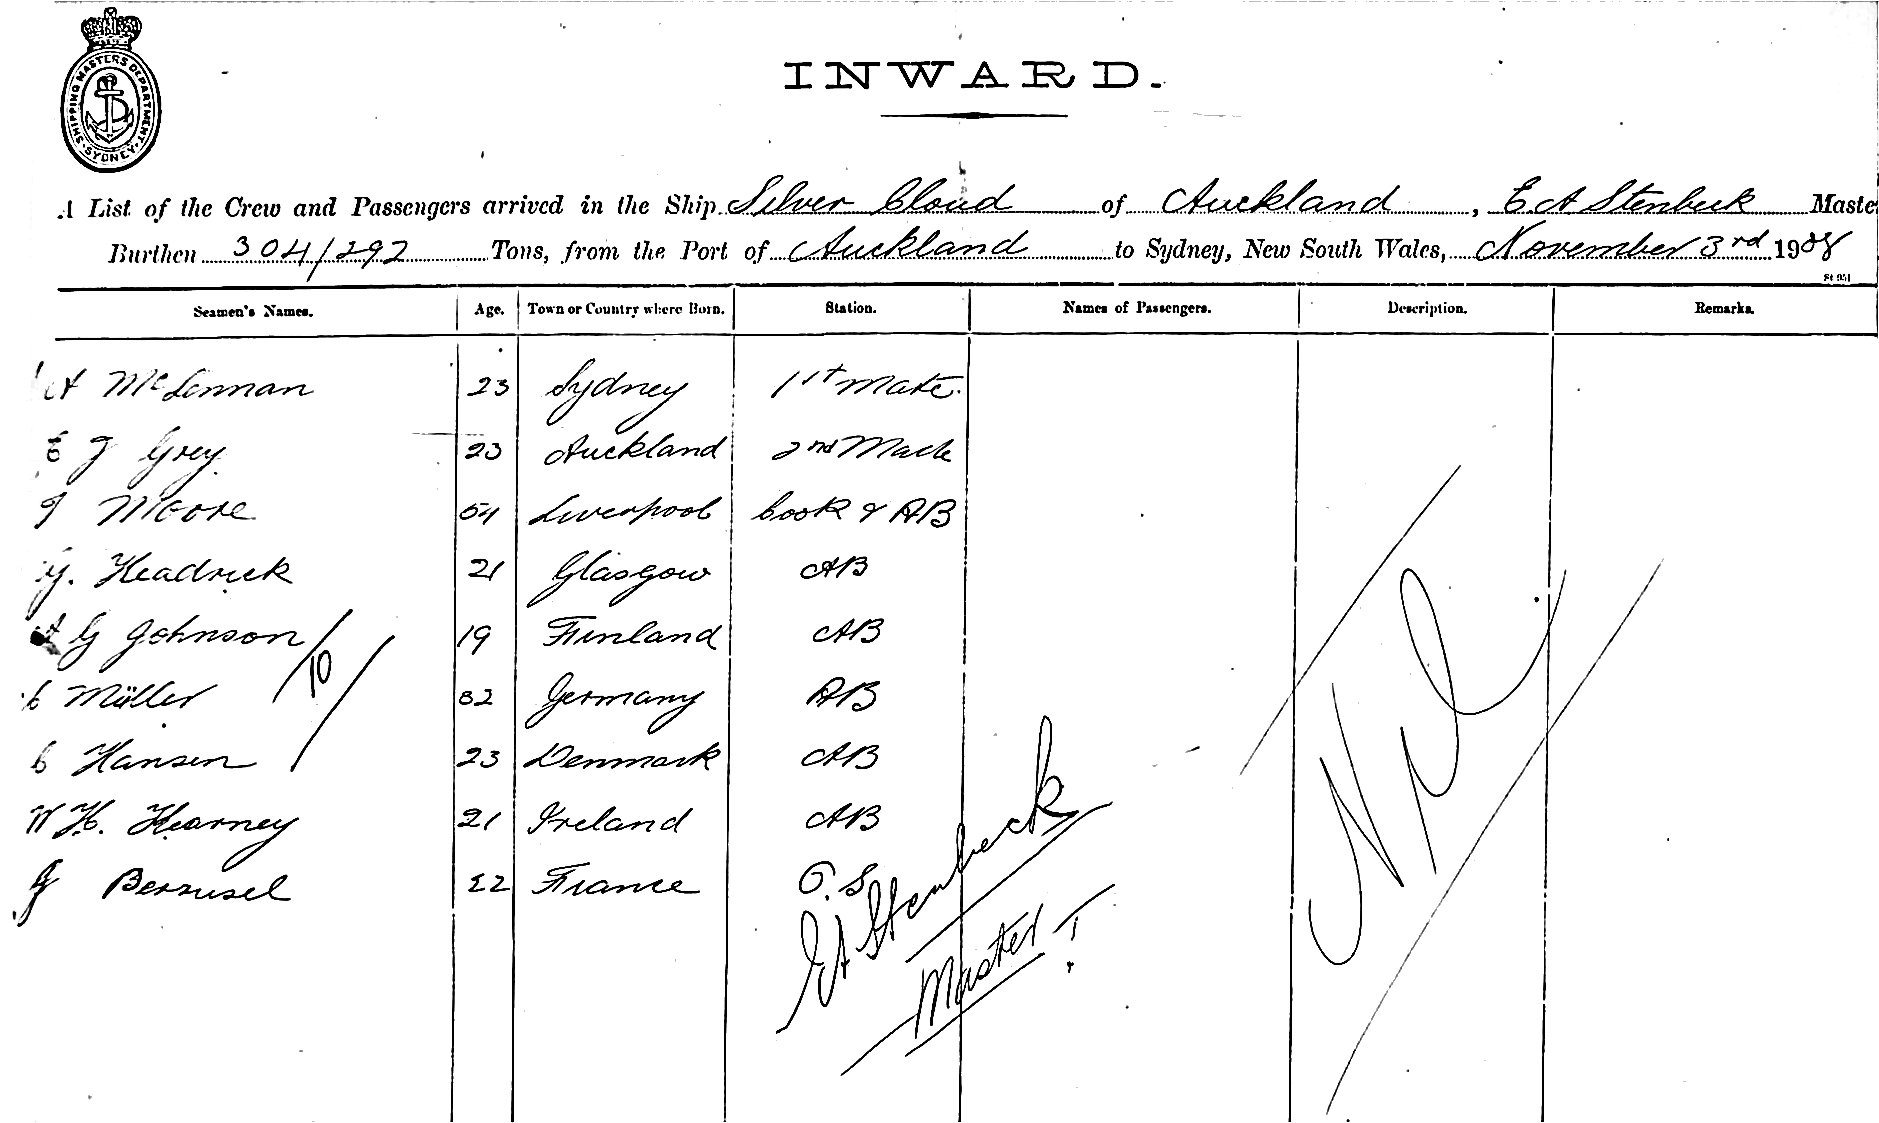 SHIPPING MASTERS DEPARTMENT. SYDNEY.
INWARD.
A List of the Crew and Passengers arrived in the Ship Silver Cloud of Auckland, E A Stenbeck Maste
Burthen 304/292 Tons, from the Port of Auckland to Sydney, New South Wales, November 3rd 1908
St 951
Seamen's Names. Age. Town or Country where Born. Station. Names of Passengers. Description. Remarks.
A McLennan 23 Sydney 1st Mate.
E J Grey 23 Auckland 2nd Mate
J Moore 54 Liverpool Cook & AB
J. Headrick 21 Glasgow AB
G Johnson 19 Finland AB
10
C Müller 32 Germany AB
C Hansen 23 Denmark AB
W H. Kearney 21 Ireland AB
J Berrusel 22 France O.S
EA Stenbeck
Master
Nil